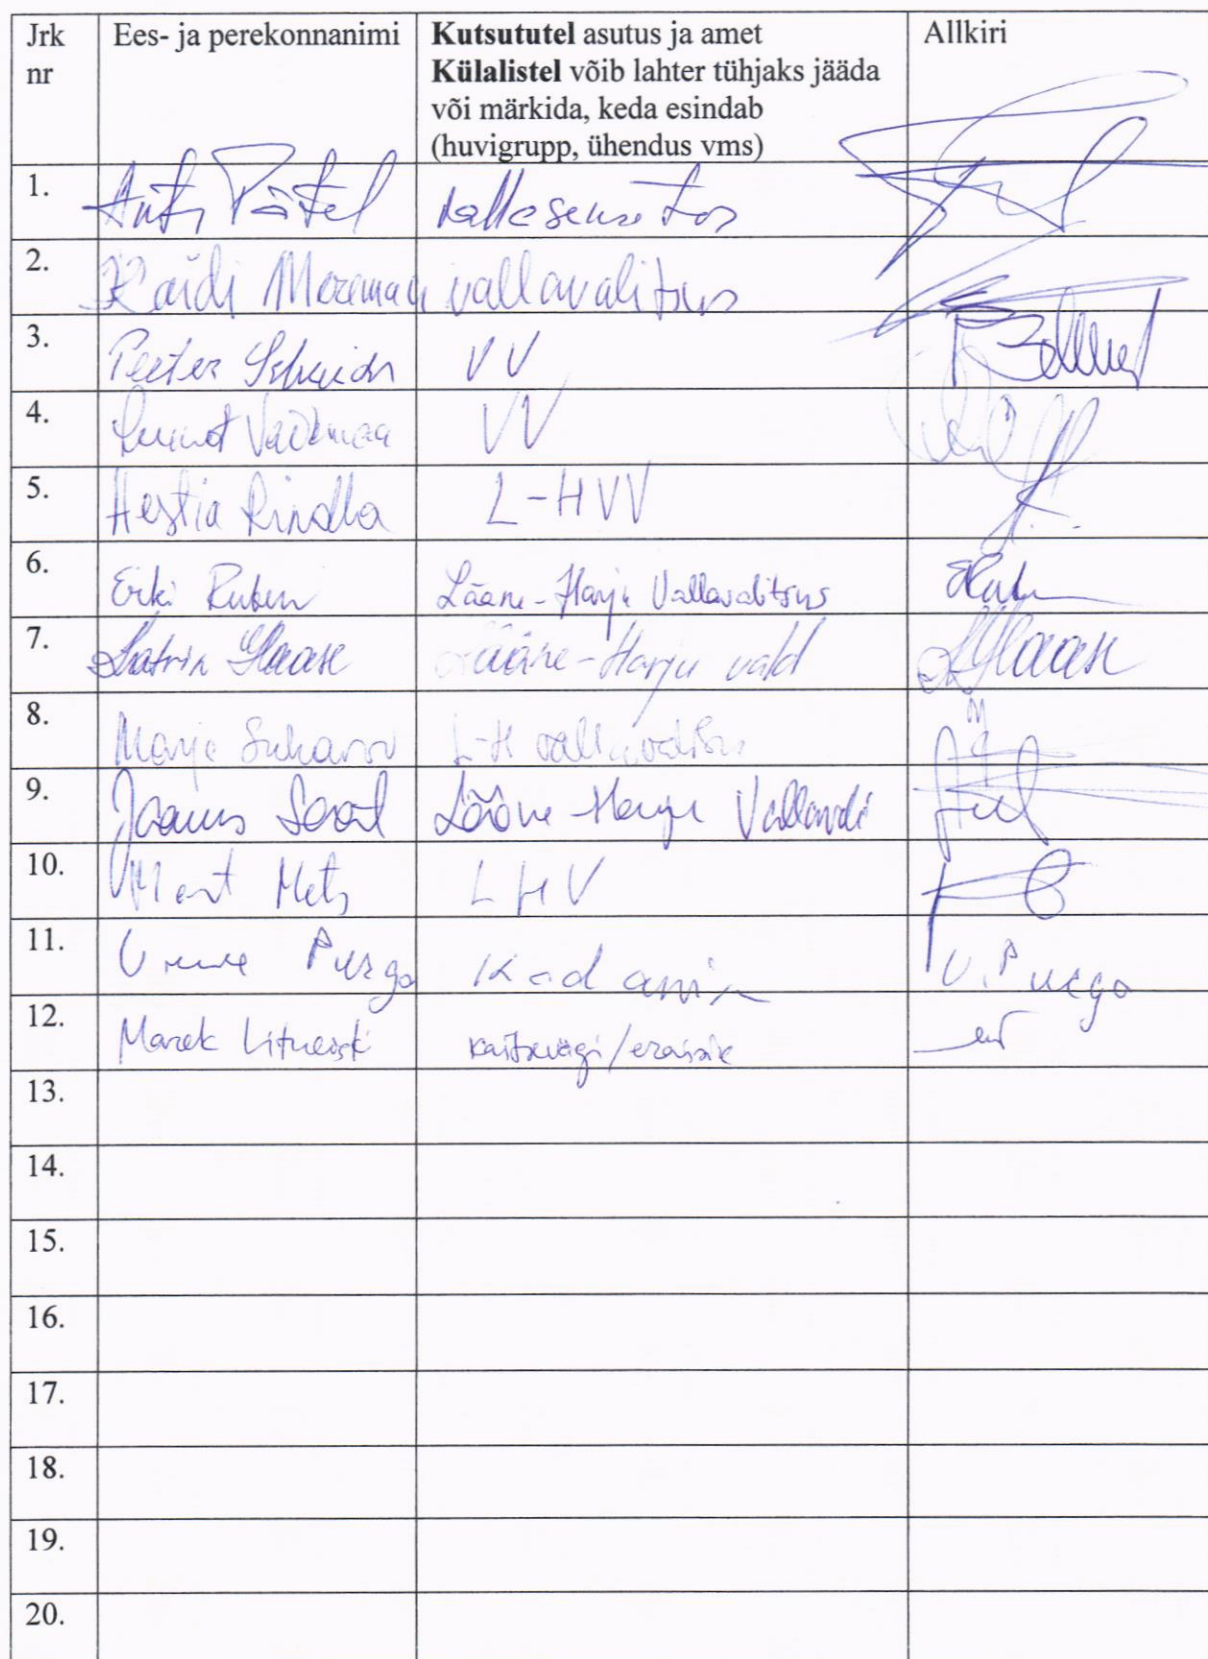 Jrk nr
Ees- ja perekonnanimi
Kutsututel asutus ja amet
Külalistel võib lahter tühjaks jääda
või märkida, keda esindab
(huvigrupp, ühendus vms)
Allkiri
1. Pätel
2. Kaidi Meremaa vallavalitsus
3. Peeter VV
4. VV
5. Hestia Rindla L-HVV
6. Erki Ruben Lääne-Harju Vallavalitsus
7. Katrin Haase Lääne-Harju vald Haase
8. Marje L-H vallavalitsus
9. Jaanus Saat Lääne-Harju Vallavali
10. Mets LHV
11. Purga U. Purga
12. Marek kaitsevägi/eraisik
13.
14.
15.
16.
17.
18.
19.
20.